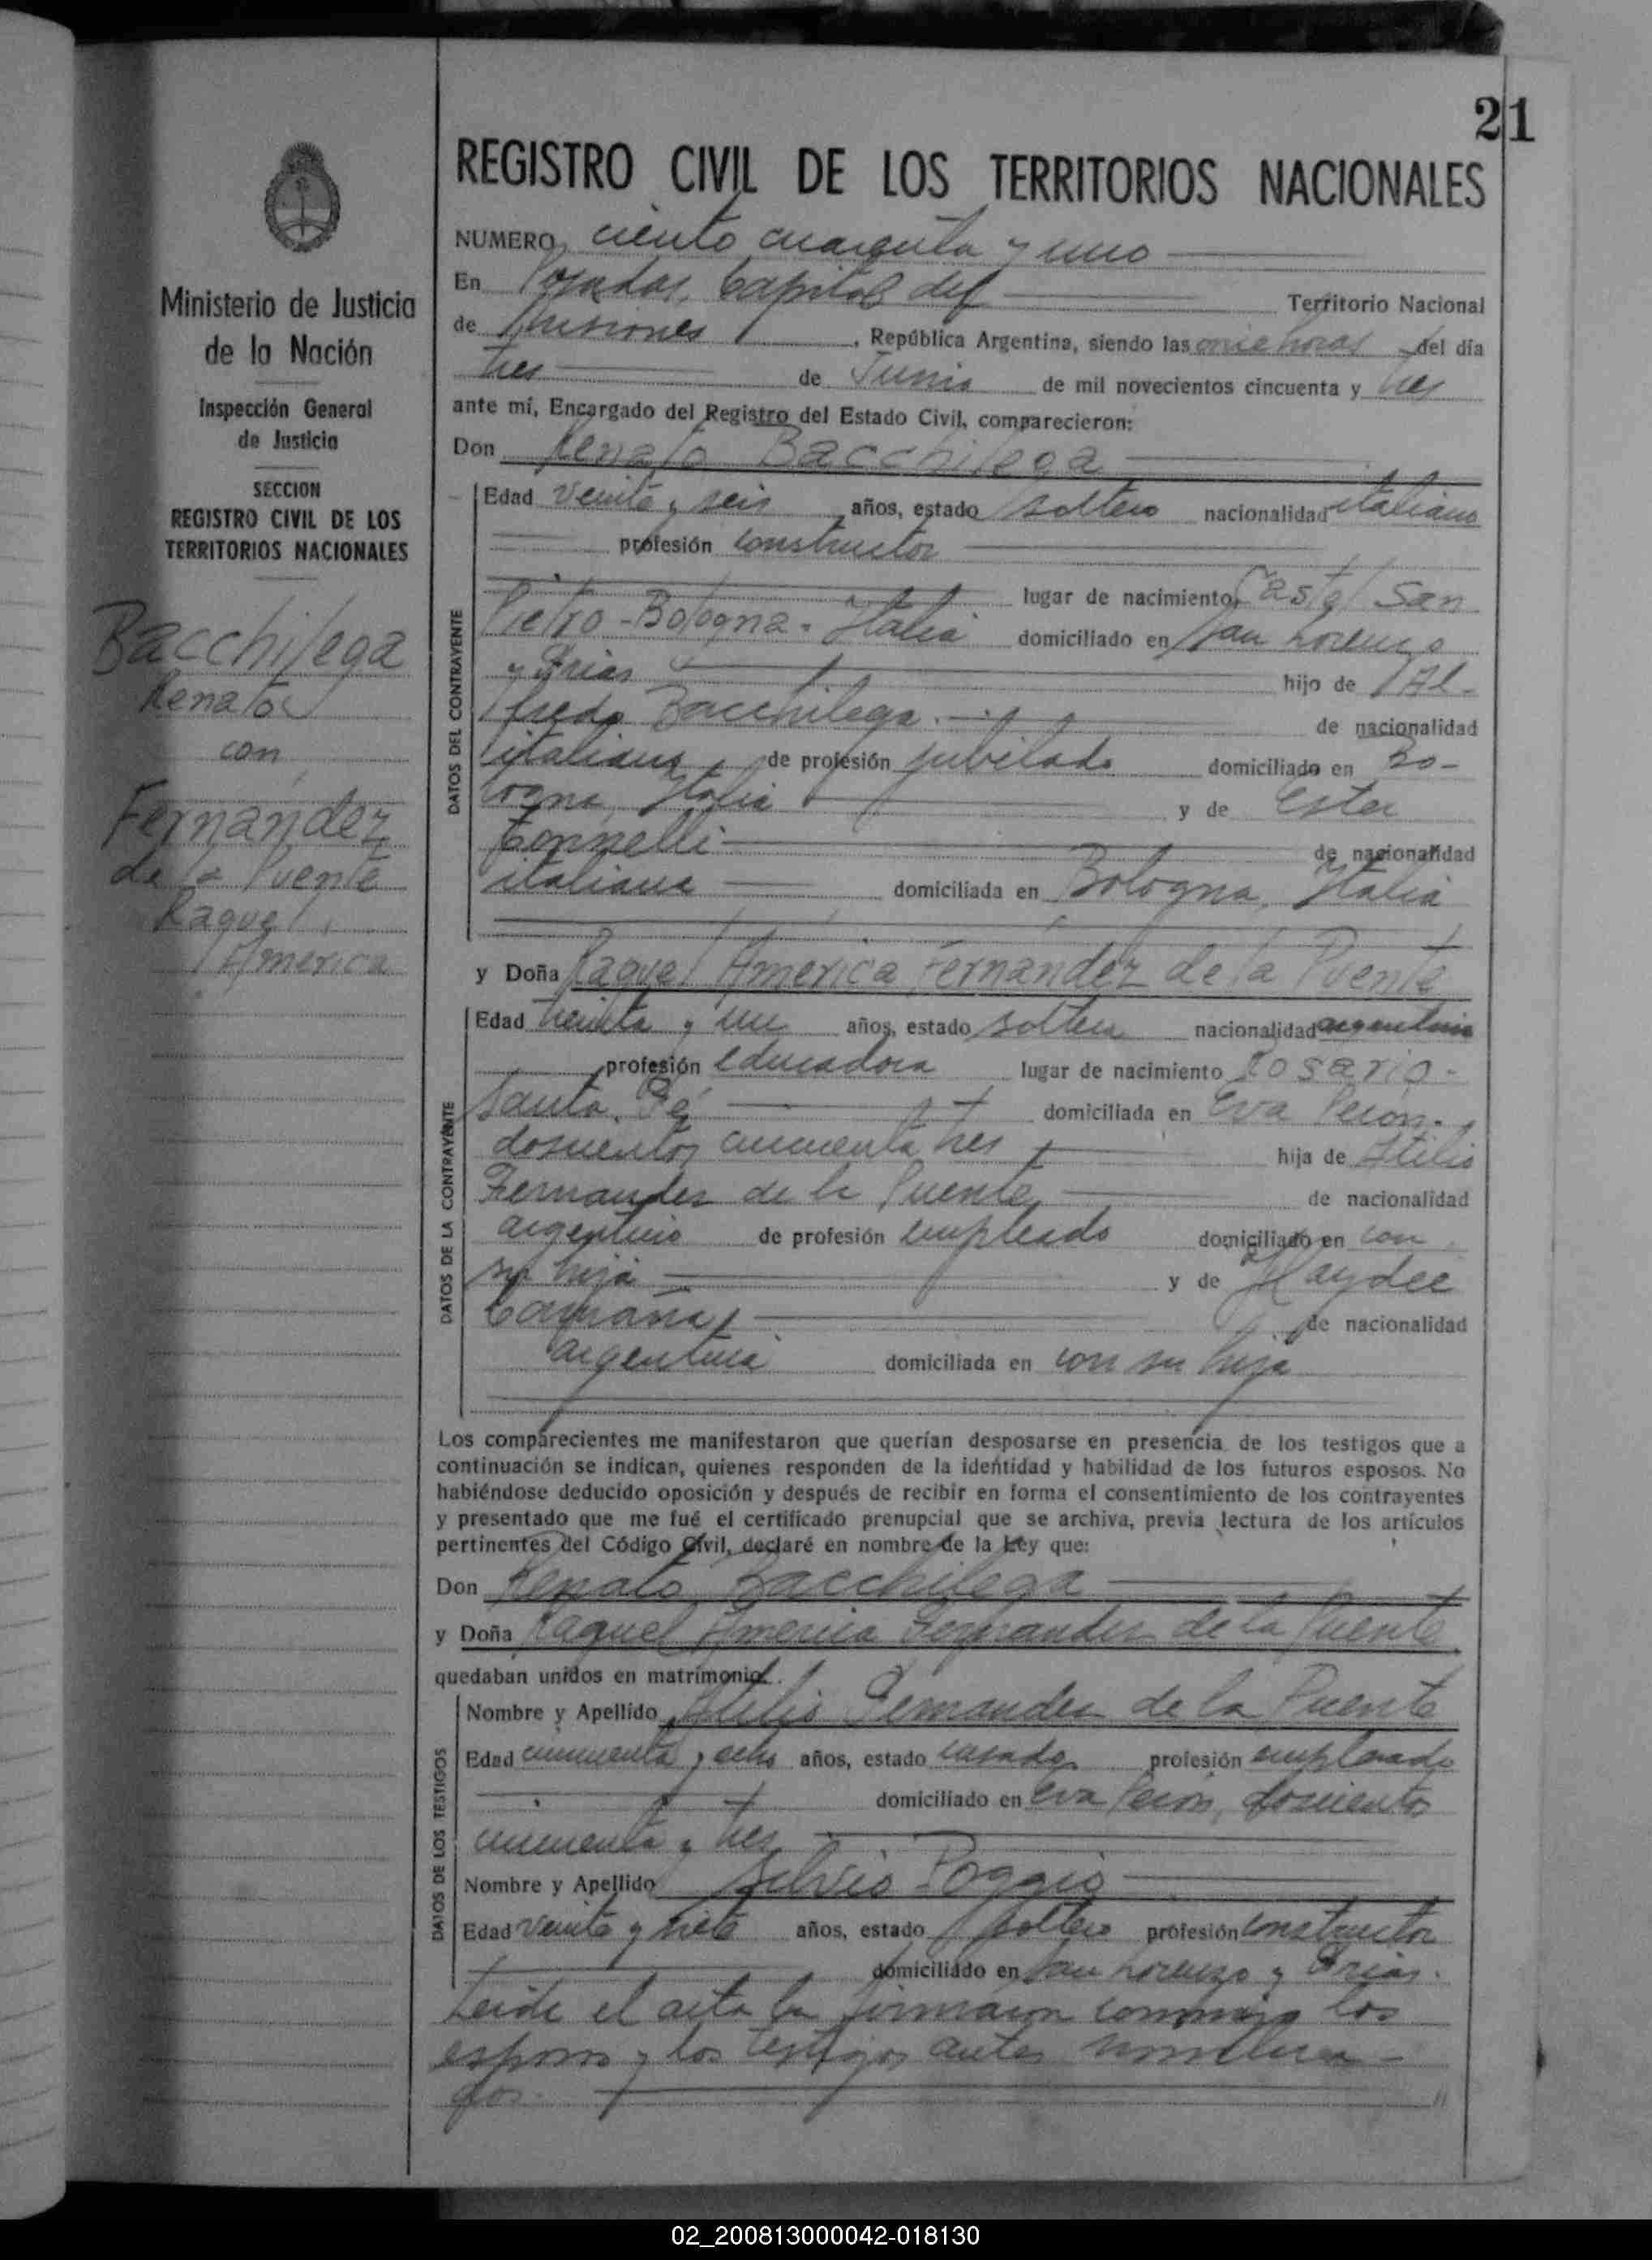 21
REGISTRO CIVIL DE LOS TERRITORIOS NACIONALES
Ministerio de Justicia
de la Nación
Inspección General
de Justicia
SECCION
REGISTRO CIVIL DE LOS
TERRITORIOS NACIONALES
Bacchilega
Renato
con
Fernández
de la Puente
Raquel
America
NUMERO ciento cuarenta y uno
En Posadas, Capital del Territorio Nacional
de Misiones, República Argentina, siendo las once horas del día
tres de Junio de mil novecientos cincuenta y tres
ante mí, Encargado del Registro del Estado Civil, comparecieron:
Don Renato Bacchilega
DATOS DEL CONTRAYENTE
Edad veinte y seis años, estado soltero nacionalidad italiano
profesión constructor
lugar de nacimiento Castel San
Pietro - Bologna - Italia domiciliado en San Lorenzo
y Frías hijo de Al-
fredo Bacchilega. de nacionalidad
italiana, de profesión jubilado domiciliado en Bo-
logna, Italia y de Ester
de nacionalidad
italiana domiciliada en Bologna, Italia
y Doña Raquel America Fernández de la Puente
DATOS DE LA CONTRAYENTE
Edad treinta y un años, estado soltera nacionalidad argentina
profesión educadora lugar de nacimiento Rosario -
Santa Fé domiciliada en Eva Perón.
doscientos cincuenta tres hija de Atilio
Fernandez de la Puente de nacionalidad
argentino de profesión empleado domiciliado en con
su hija y de Haydee
de nacionalidad
argentina domiciliada en con su hija
Los comparecientes me manifestaron que querían desposarse en presencia de los testigos que a
continuación se indican, quienes responden de la identidad y habilidad de los futuros esposos. No
habiéndose deducido oposición y después de recibir en forma el consentimiento de los contrayentes
y presentado que me fué el certificado prenupcial que se archiva, previa lectura de los artículos
pertinentes del Código Civil, declaré en nombre de la Ley que:
Don Renato Bacchilega
y Doña Raquel America Fernandez de la Puente
quedaban unidos en matrimonio.
DATOS DE LOS TESTIGOS
Nombre y Apellido Atilio Fernandez de la Puente
Edad cincuenta y ocho años, estado casado profesión empleado
domiciliado en Eva Perón, doscientos
cincuenta y tres
Nombre y Apellido Silvio Poggio
Edad veinte y siete años, estado soltero profesión constructor
domiciliado en San Lorenzo y Frías.
Leida el acta la firmaron conmigo los
esposos y los testigos antes nombra-
dos.
02_200813000042-018130